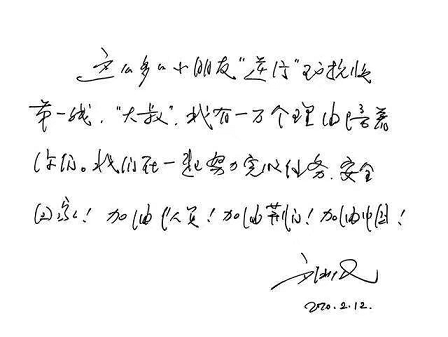 这么多小朋友“逆行”到抗疫
第一线，“大叔”，我有一万个理由陪着
你们。我们在一起努力完成任务，安全
回家！加油队员！加油！加油中国！
2020.2.12.